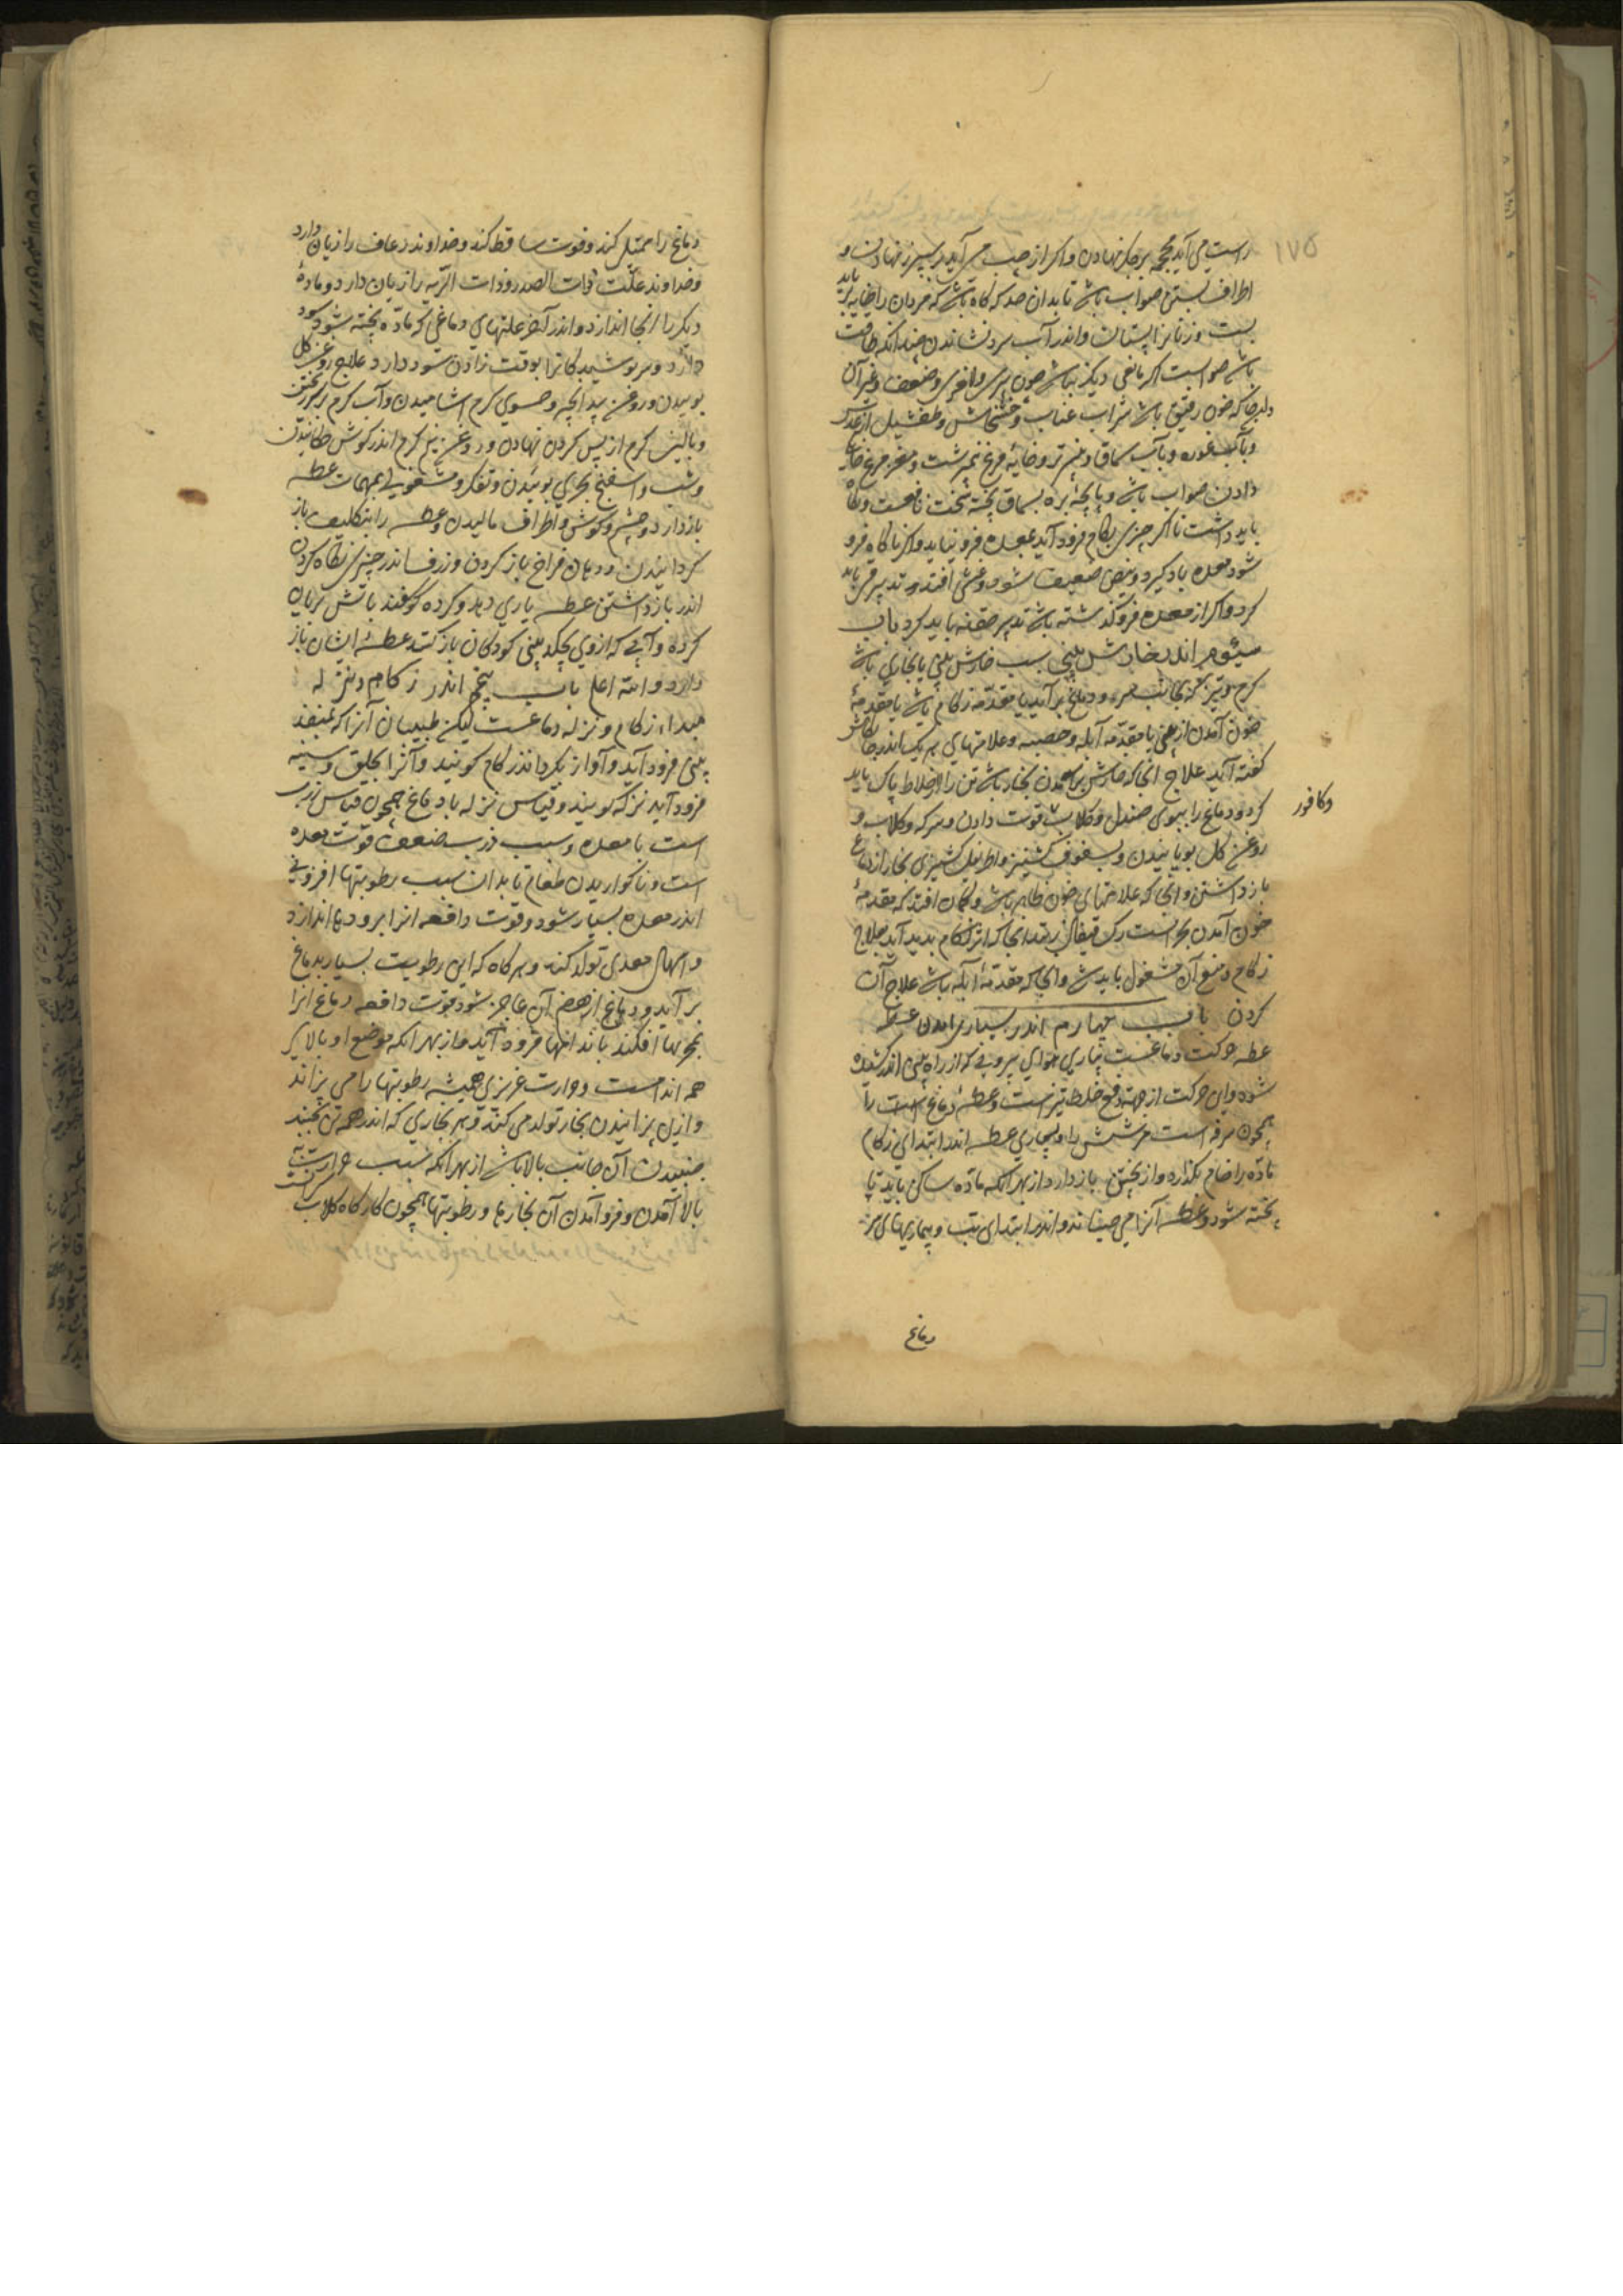 ۱۷۵
راست می آید محجمه بر جگر نهادن و اگر از چپ می آید بر سپرز نهادن و
اطراف بستن صواب باشد تا بدان حد که گاه باشد که مردان را خایه باید
بست و زنانرا پستان و اندر آب سرد نشاندن چندانکه طاقت
باشد صوابست اگر مانعی دیگر نباشد چون پیری و لاغری و ضعف و غیر آن
و آنجا که خون رقیق باشد شراب عناب و خشخاش و طفشیل از عدس
و بآب غوره و بآب سماق و پنیر تر و خایهٔ مرغ نیم برشت و مغز مرغ خانگی
دادن صواب باشد و پاچهٔ بره بسماق پخته سخت نافعست و نگاه
باید داشت تا اگر چیزی بکام فرود آید بمعده فرو نیاید و اگر ناگاه فرو
شود معده باد گیرد و نبض ضعیف شود و غشی افتد و تدبیر قی باید
کرد و اگر از معده فرو گذشته باشد تدبیر حقنه باید کرد باب
سیوم اندر خارش بینی سبب خارش بینی یا بخاری باشد
گرم و تیز که بجانب سر و دماغ بر آید یا مقدمهٔ زکام باشد یا مقدمهٔ
خون آمدن از بینی یا مقدمهٔ آبله و حصبه و علامتهای هر یک اندر جایگاهش
گفته آید علاج آنجا که خارش بر آمدن بخار باشد تن را از اخلاط پاک باید
کرد و دماغ را ببوی صندل و گلاب قوت دادن و سرکه و گلاب و
وکافور
روغن گل بویانیدن و بسفوف کشنیز و اطریفل کشنیزی بخار از دماغ
باز داشتن و آنجا که علامتهای خون ظاهر باشد و گمان افتد که مقدمهٔ
خون آمدن بحرانست رگ قیفال زدند آنجا که اثر زکام پدید آید بعلاج
زکام و منع آن مشغول باید شد و آنجا که مقدمهٔ آبله باشد علاج آن
کردن باب چهارم اندر بسیاری آمدن عطسه
عطسه حرکت دماغست بیاری هوای بیرونی که از راه بینی اندر کشیده
شود و این حرکت از جهت دفع خلط تیز است و عطسه دماغ است را
همچون سرفه است مر شش را و بسیاری عطسه اندر ابتدای زکام
ماده را خام بگذارد و از پختن باز دارد از بهر آنکه ماده ساکن باید تا
پخته شود و عطسه آنرا می جنباند و اندر ابتدای تب و بیماریهای سر
دماغ
دماغ را ممتلی کند و قوت ساقط کند و خداوند رعاف را زیان دارد
و خداوند علت ذات الصدر و ذات الریه را زیان دارد و مادهٔ
دیگر را آنجا اندازد و اندر آخر علتهای دماغی که ماده پخته شود سود
دارد و سر پوشیدگانرا بوقت زادن سود دارد علاج روغن گل
بوئیدن و روغن بید انجیر و حسوی گرم آشامیدن و آب گرم بر سر ریختن
و بالش گرم از پس گردن نهادن و روغن نیم گرم اندر گوش چکانیدن
و شب و اسفنج بحری بوئیدن و تفکر و مشغولی بمهمات عطسه
باز دارد و چشم و گوش و اطراف مالیدن و عطسه را بتکلیف باز
گردانیدن و دهان فراخ باز کردن و ژرف اندر چیزی نگاه کردن
اندر باز داشتن عطسه یاری دهد و گرده گوسفند باتش بریان
کرده و آبی که از وی بچکد بینی کودکان باز کنند عطسه ایشان باز
دارد و الله اعلم باب پنجم اندر زکام و نزله
مبداء زکام و نزله دماغست لیکن طبیبان آنرا که بمنفذ
بینی فرود آید و آواز بگرداند زکام گویند و آنرا بحلق و سینه
فرود آید نزله گویند و قیاس نزله با دماغ همچون قیاس ذرب
است با معده و سبب ذرب ضعف قوت معده
است و ناگواریدن طعام تا بدان سبب رطوبتها افزونی
اندر معده بسیار شود و قوت دافعه آنرا برودها اندازد
و اسهال معدی تولد کند و هر گاه که این رطوبت بسیار بدماغ
بر آید و دماغ از هضم آن عاجز شود قوت دافعه دماغ آنرا
همه اندامست و حرارت غریزی همیشه رطوبتها را می پزاند
و ازین پزانیدن بخار تولد می کند و هر بخاری که اندر همه تن بجنبد
جنبیدن آن جانب بالا باشد از بهر آنکه سبب حرارتست
بالا آمدن و فرو آمدن آن بخارها و رطوبتها همچون کارگاه گلاب